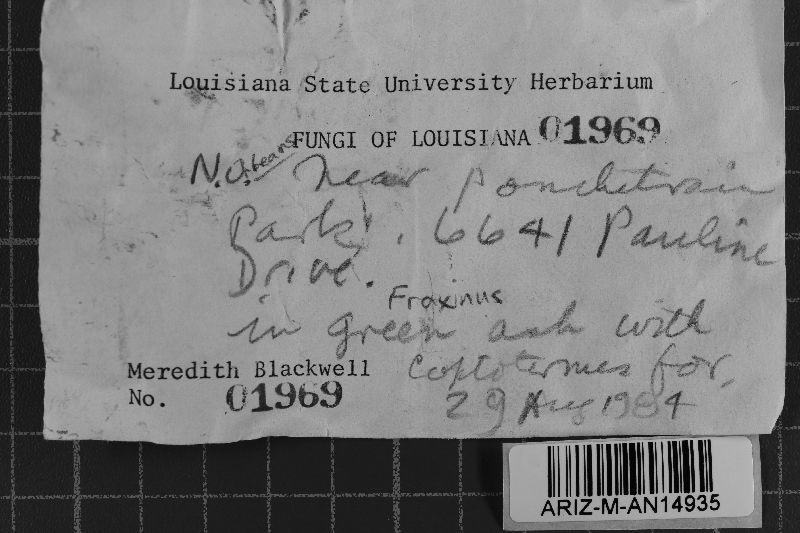 Louisiana State University Herbarium
FUNGI OF LOUISIANA 01969
N.Orleans near Ponchetrain
Park, 6641 Pauline
Drive.
Fraxinus
in green ash with
Coptotermes for.
29 Aug 1984
Meredith Blackwell
No. 01969
ARIZ-M-AN14935